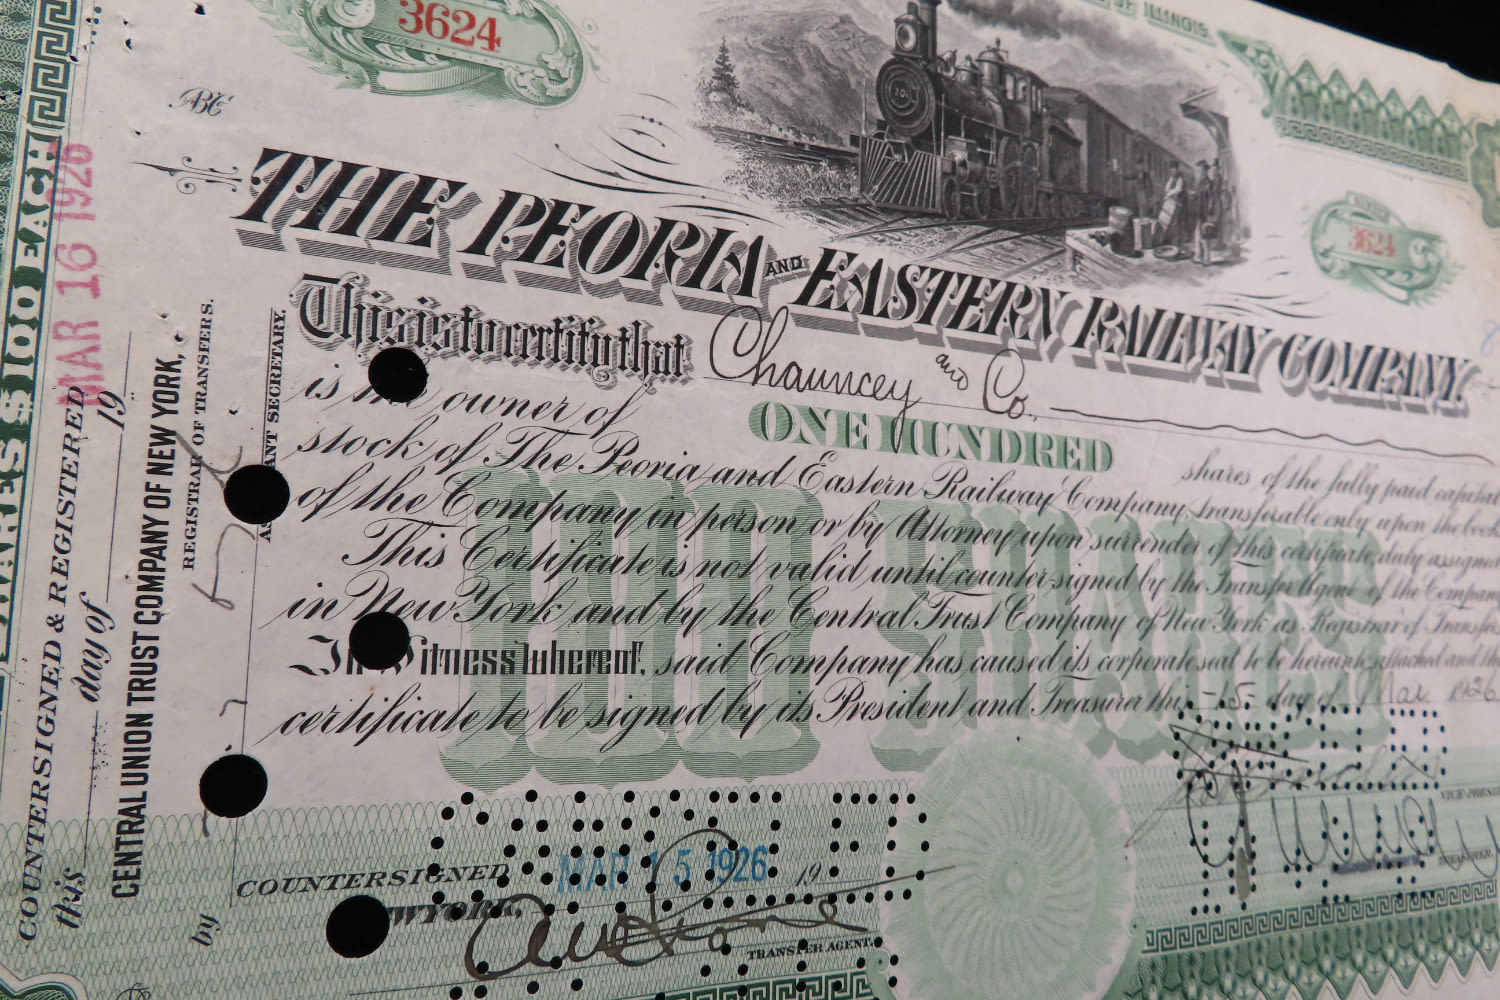 3624
OF ILLINOIS.
701
NUMBER
3624
THE PEORIA AND EASTERN RAILWAY COMPANY.
This is to certify that Chauncey and Co.
is the owner of ONE HUNDRED shares of the fully paid capital
stock of The Peoria and Eastern Railway Company, transferable only upon the books
of the Company in person or by Attorney upon surrender of this certificate duly assigned.
This Certificate is not valid until countersigned by the Transfer Agent of the Company
in New York and by the Central Trust Company of New York as Registrar of Transfers
In Witness Whereof, said Company has caused its corporate seal to be hereunto attached and this
certificate to be signed by its President and Treasurer this -15- day of Mar 1926
100 SHARES
COUNTERSIGNED MAR 15 1926 19
NEW YORK,
TRANSFER AGENT.
VICE-PRESIDENT
TREASURER.
SHARES $100 EACH
MAR 16 1926
COUNTERSIGNED & REGISTERED
this day of 19
CENTRAL UNION TRUST COMPANY OF NEW YORK,
REGISTRAR OF TRANSFERS.
by
ASSISTANT SECRETARY.